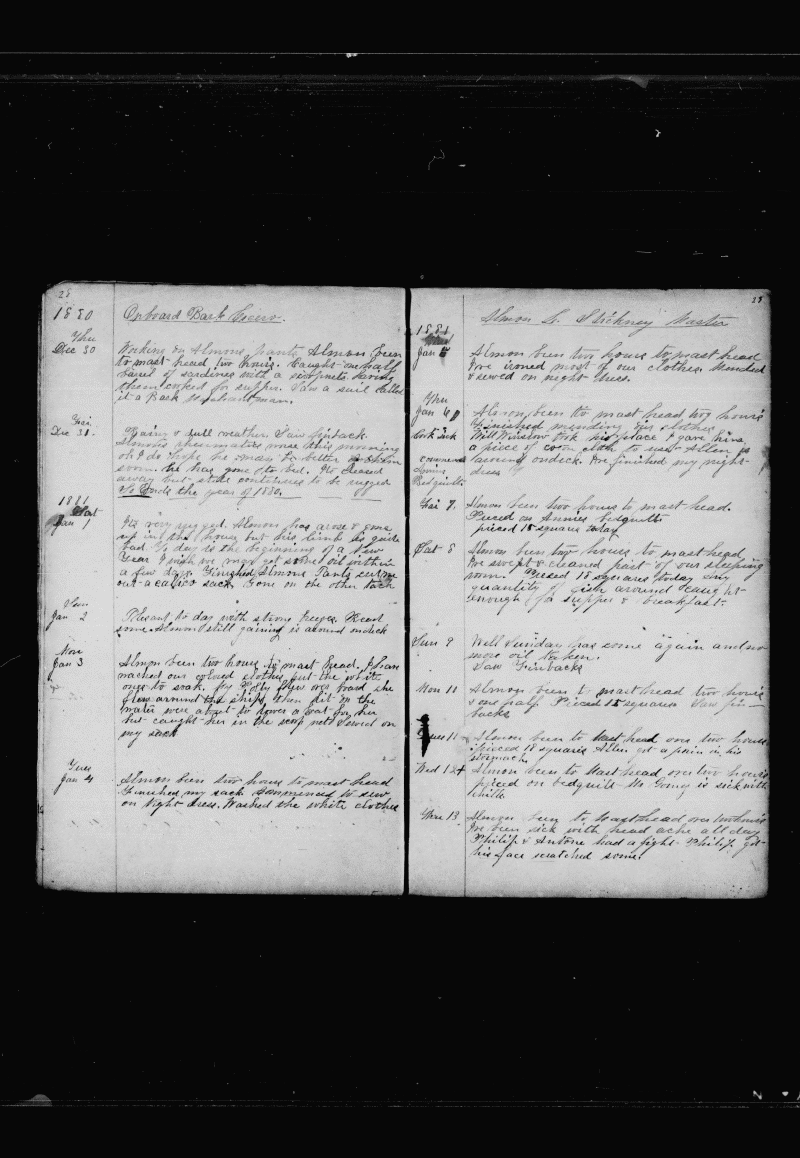 28
1880 Onboard Bark Cicero.
Thu
Dec 30 Working on Almons pants Almon been
to mast head two hours. Caught one half
barel of sardines with a scoopnets having
them cooked for supper. Saw a sail called
it a Bark Merchantman.
Fri
Dec 31. Rainy & dull weather. Saw finback
Almons rheumatics worse this morning
oh I do hope he soon be better
soon he has gone to bed. Its cleared
away but still continues to be rugged
So Ends the year of 1880.
1881
Sat
Jan 1 Its very rugged. Almon has arose & gone
up in the house but his limb is quite
bad. To day is the beginning of a New
Year I wish we may get some oil within
a few days. Finished Almons Pants cut me
out a calico sack, Gone on the other tack
Sun
Jan 2 Pleasant to day with strong breezes. Read
some. Almon still gaining is around ondeck
Mon
Jan 3 Almon been two hours to mast head. I have
washed our colored clothes put the white
ones to soak. My Polly flew over board she
flew around the ship, then lit on the
water were about to lower a boat for her
but caught her in the scoop net. Sewed on
my sack
Tues
Jan 4 Almon been two hours to mast head
Finished my sack Commenced to sew
on Night dress. Washed the white clothes
28
Almon L. Stickney Master
1881
Jan 5 Almon been two hours to mast head
Ive ironed most of our clothes. Mended
& sewed on night dress.
Thu
Jan 6 Almon been to the mast head two hours
finished mending his clothes
Will Winslow took his place I gave him
a piece of cloth to
around ondeck. Ive finished my night-
dress
commenced
Bedquilts
Fri 7. Almon been two hours to mast head.
Pieced on Annies bedquilts
pieced 18 squares today
Sat 8 Almon been two hours to mast head
Ive swept & cleaned part of our sleeping
room. Pieced 18 squares today any
quantity of fish around caught
enough for supper & breakfast.
Sun 9 Well Sunday has come again and no
more oil taken.
Saw Finbacks
Mon 10 Almon been to mast head two hours
& one half. Pieced 15 squares Saw fin-
backs
Tues 11 Almon been to Mast head over two hours
pieced 18 squares Allen got a pain in his
stomach
Wed 12 Almon been to Mast head over two hours
pieced on bedquilt Mr Going is sick with
chills
Thur 13 Almon been to Mast head over two hours
Ive been sick with head ache all day
Philip & Antone had a fight. Philip got
his face scratched some.